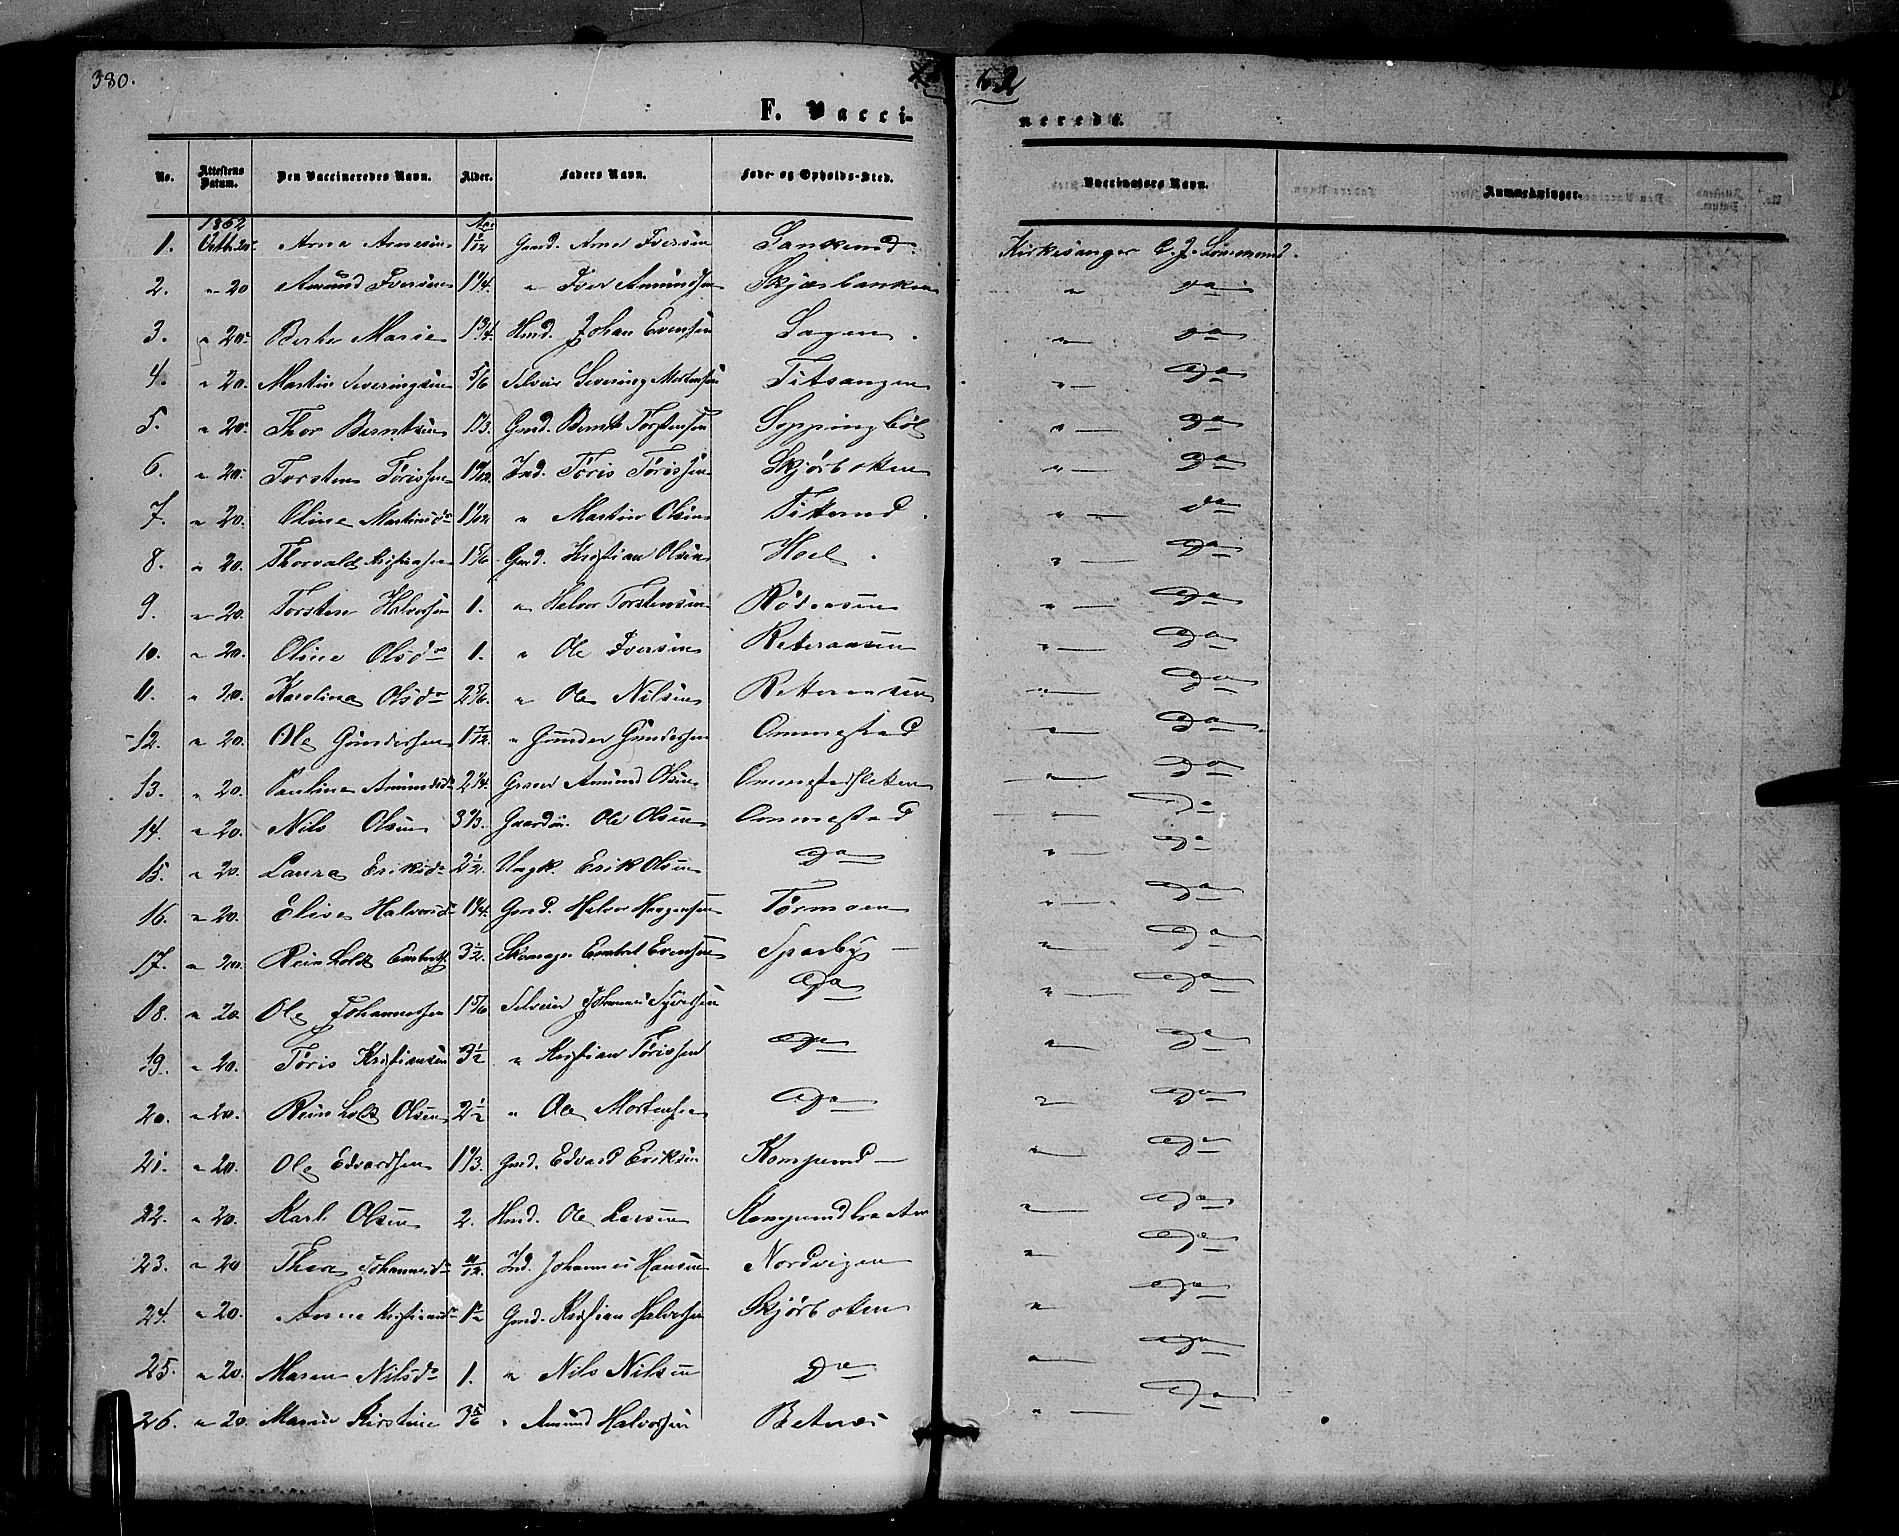 380.
62
F. Vacci-
nerede.
No. Attestens Datum. Den Vaccineredes Navn. Alder. Faders Navn. Føde- og Opholds-Sted. Vaccinators Navn. Anmærkninger.
1862
1. 20 Arne Arnesen 1 Gmd. Arne Iversen Kirkesanger
2. " 20 Amund Iversen 1 1/4. " Iver Amundsen Skjærbanken " Do
3. " 20. Berte Marie 1 3/4. Hmd. Johan Evensen Sagen. " Do
4. " 20. Martin Severinsen 5/6 Severin Mortensen Titsangen " Do
5. " 20. Thor Berntsen 1 1/3. Gmd. Bernt Torstensen Seppingbøl " Do
6. " 20. Torsten Tørissen Ind. Tøris Tørissen Skjørboten " Do
7. " 20. Oline Martinsd " Martin Olsen " Do
8. " 20. Thorvald Kristiansen 1 5/6 Gmd. Kristian Olsen Hoel. " Do
9. " 20. Torsten Halvorsen 1. " Halvor Torstensen " Do
10. " 20. Oline Olsd 1. " Ole Iversen " Do
11. " 20. Karoline Olsd 2 5/6. " Ole Nilsen " Do
12. " 20. Ole Gundersen 1 7/12. " Gunder Gundersen Ommestad " Do
13. " 20. Pauline Amundsd 2 1/4. Amund Olsen " Do
14. " 20. Nils Olsen 3 1/3. Ole Olsen Ommestad " Do
15. " 20. Laura Eriksd 2 1/2. Ungk. Erik Olsen Do " Do
16. " 20. Elise Halvorsd 1 1/4. Gmd. Halvor Haagensen Tørmoen " Do
17. " 20. Reinholdt Embretsen 3 1/2. Skomager Embret Evensen Sparby " Do
18. " 20. Ole Johannesen 1 5/6 Johannes Syversen Do " Do
19. " 20. Tøris Kristiansen 3 1/2 " Kristian Tørissen Do " Do
20. " 20. Reinholdt Olsen 2 1/2 " Ole Mortensen Do " Do
21. " 20. Ole Edvardsen 1 1/3. Gmd. Edvard Eriksen Kongerud " Do
22. " 20. Karl Olsen 2. Hmd. Ole Larsen Kongerudbraaten " Do
23. " 20 Thea Johannesd 11/12. Ind. Johannes Hansen Nordvigen " Do
24. " 20. Anne Kristiansd 1 Gmd. Kristian Halvorsen Skjørboten " Do
25. " 20. Maren Nilsd 1. " Nils Nilsen Do " Do
26. " 20. Maren Kirstine 3 5/6 " Amund Halvorsen " Do